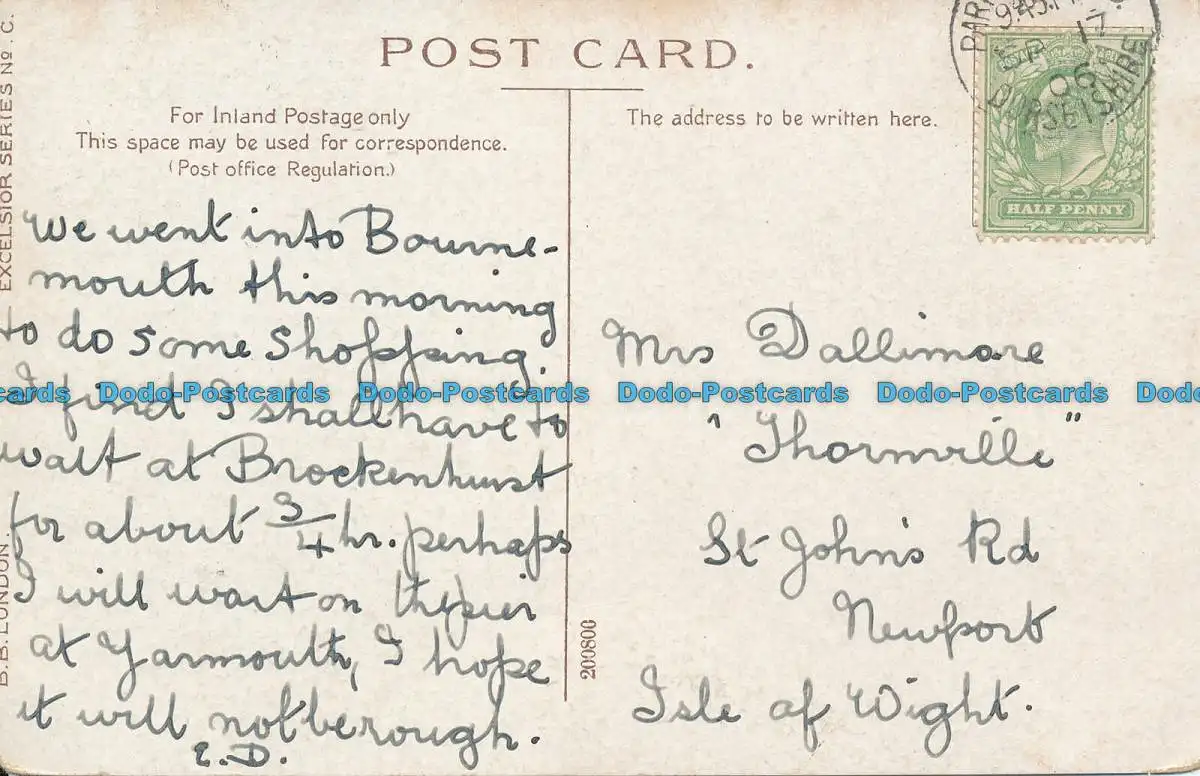 POST CARD.
For Inland Postage only
This space may be used for correspondence.
(Post office Regulation.)
The address to be written here.
EXCELSIOR SERIES No. C.
B.B. LONDON.
209800
9.45.PM
SP 17
06
DORSETSHIRE
HALF PENNY
We went into Bourne-
mouth this morning
to do some shopping.
I find I shall have to
wait at Brockenhurst
for about 3/4 hr. perhaps
I will wait on the pier
at Yarmouth, I hope
it will not be rough.
E.D.
Mrs Dallimore
"Thornville"
St John's Rd
Newport
Isle of Wight.
Dodo-Postcards Dodo-Postcards Dodo-Postcards Dodo-Postcards